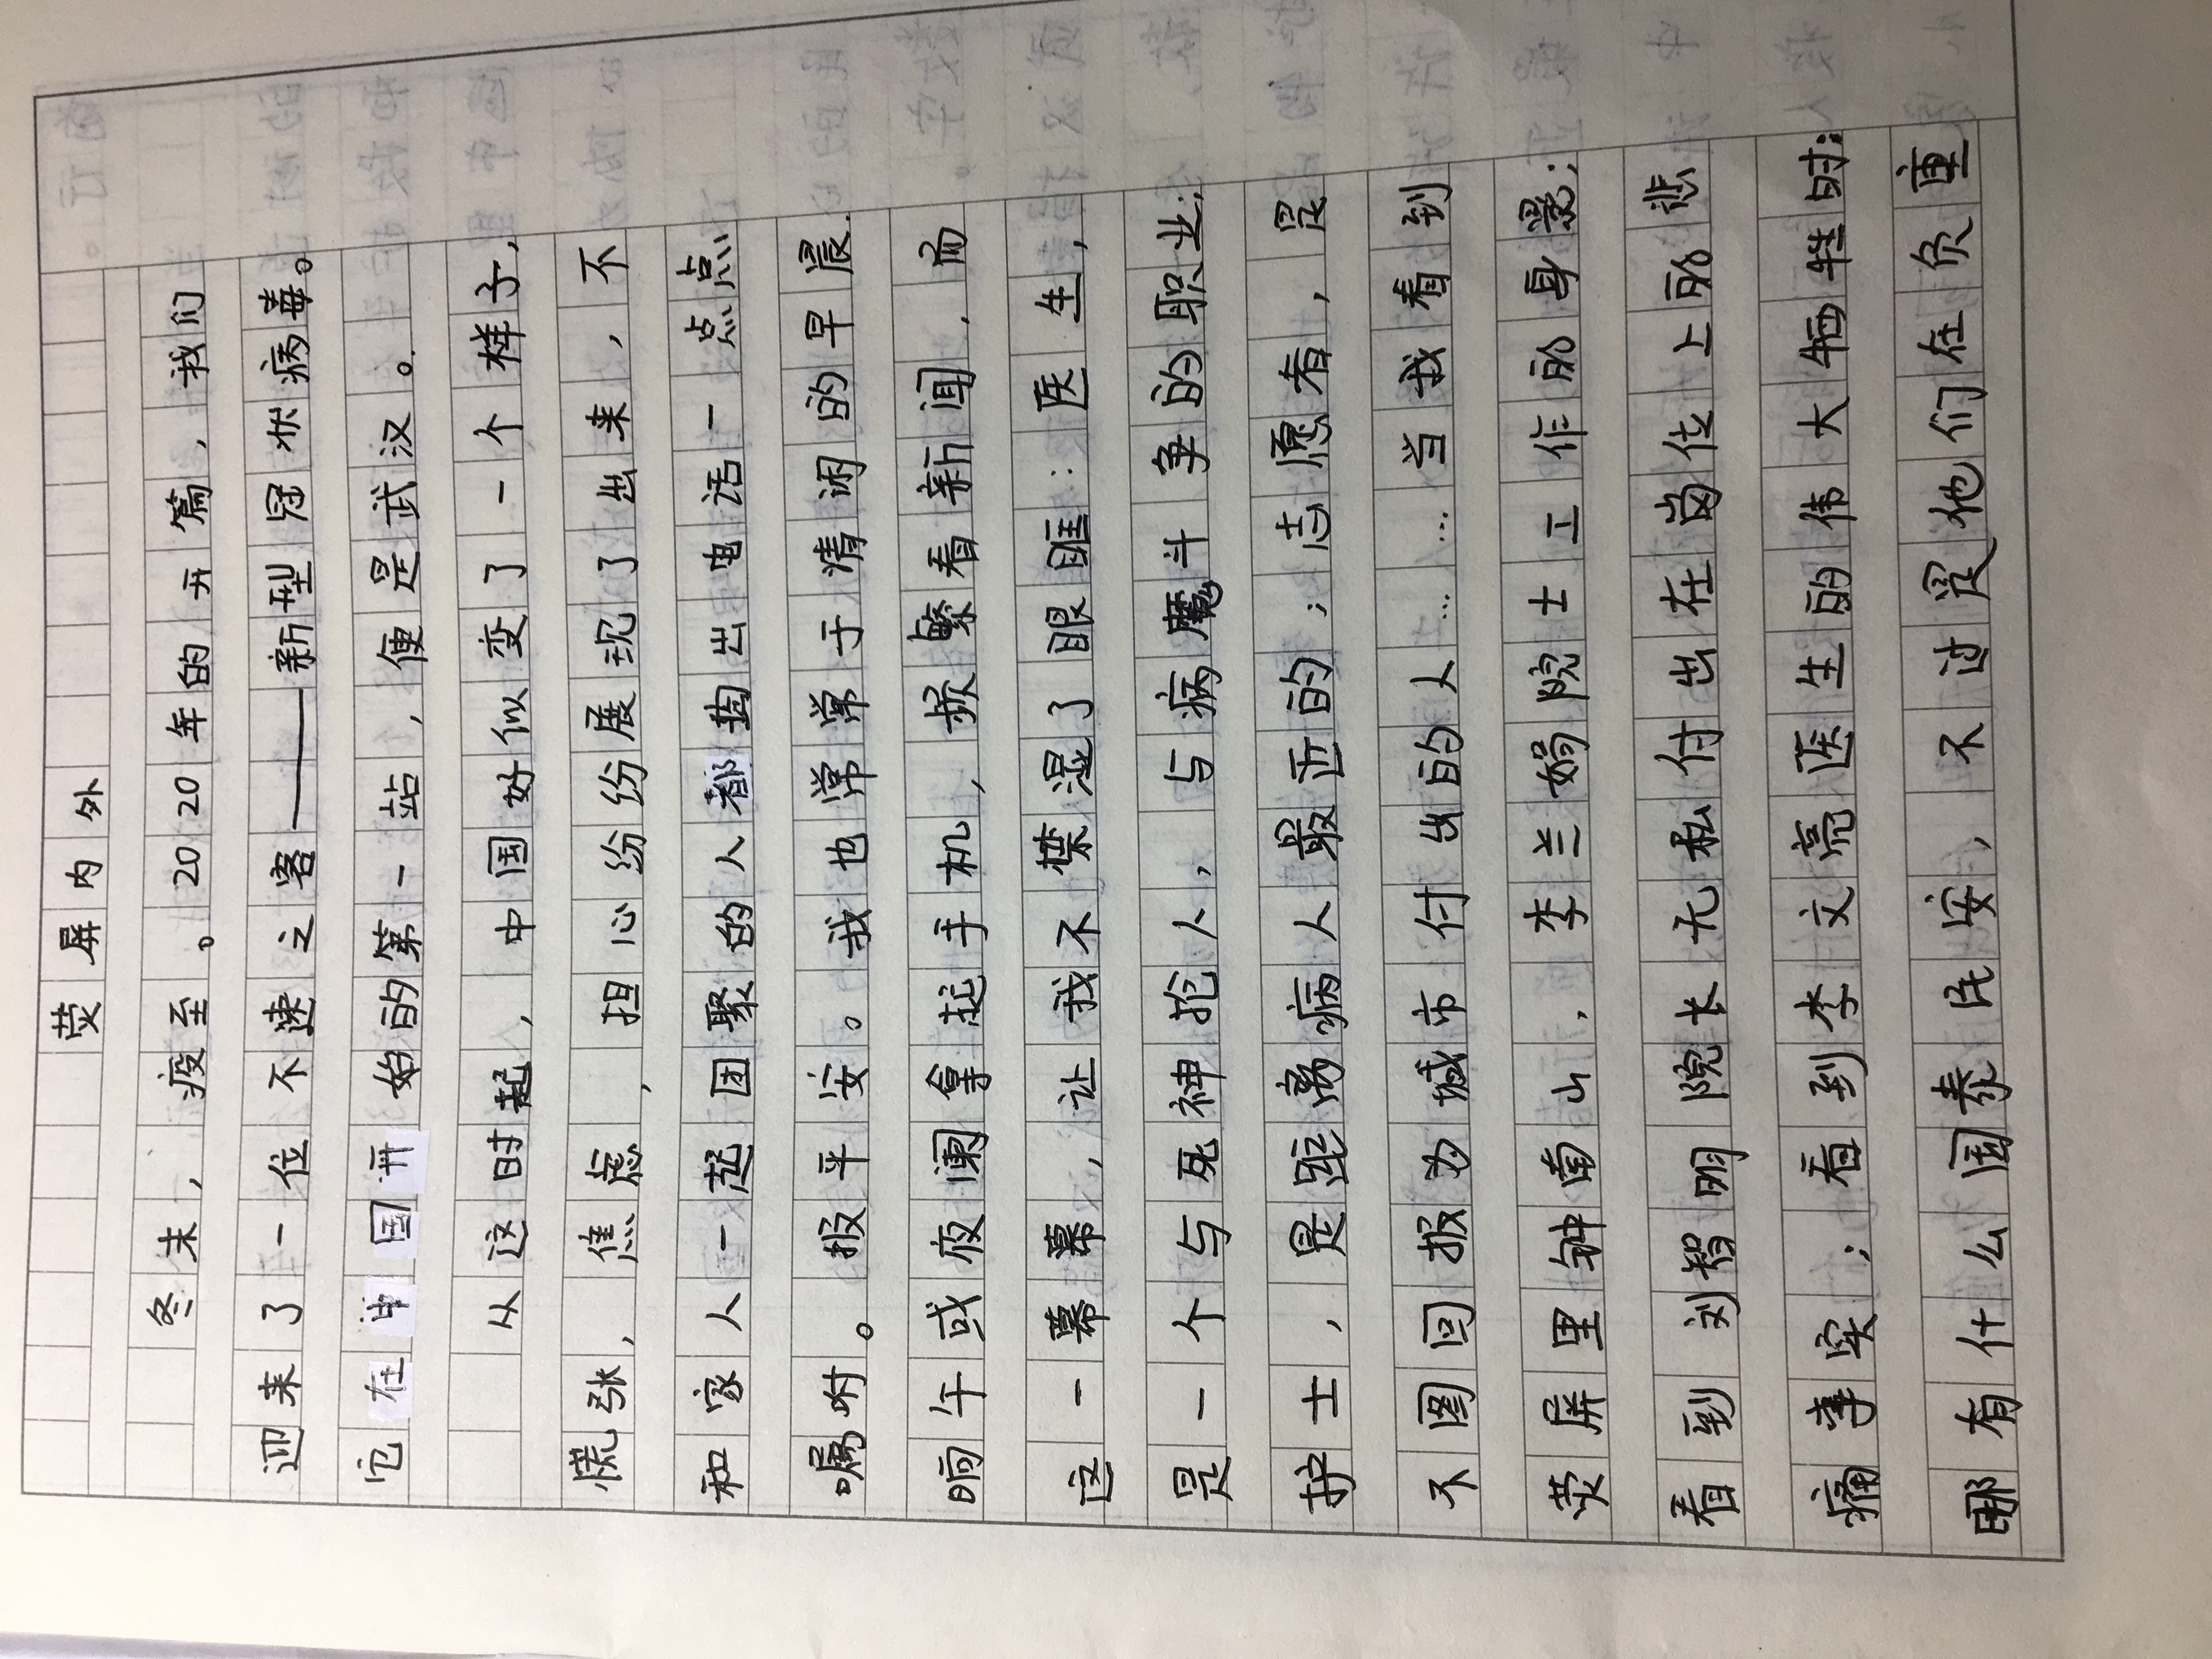 荧屏内外
冬末，疫至。2020年的开篇，我们
迎来了一位不速之客——新型冠状病毒。
它在中国开始的第一站，便是武汉。
从这时起，中国好似变了一个样子，
慌张，焦虑，担心纷纷展现了出来，不
和家人一起团聚的人都拨出电话一点点
嘱咐。报平安。我也常常于清闲的早晨.
晌午或夜阑拿起手机，频繁看新闻，而
这一幕幕，让我不禁湿了眼眶：医生，
是一个与死神抢人，与病魔斗争的职业；
护士，是距离病人最近的；志愿者，是
不图回报为城市付出的人……当我看到
荧屏里钟南山，李兰娟院士工作的身影；
看到刘智明院长无私付出在岗位上的悲
痛事实；看到李文亮医生的伟大牺牲时：
哪有什么国泰民安，不过是他们在负重